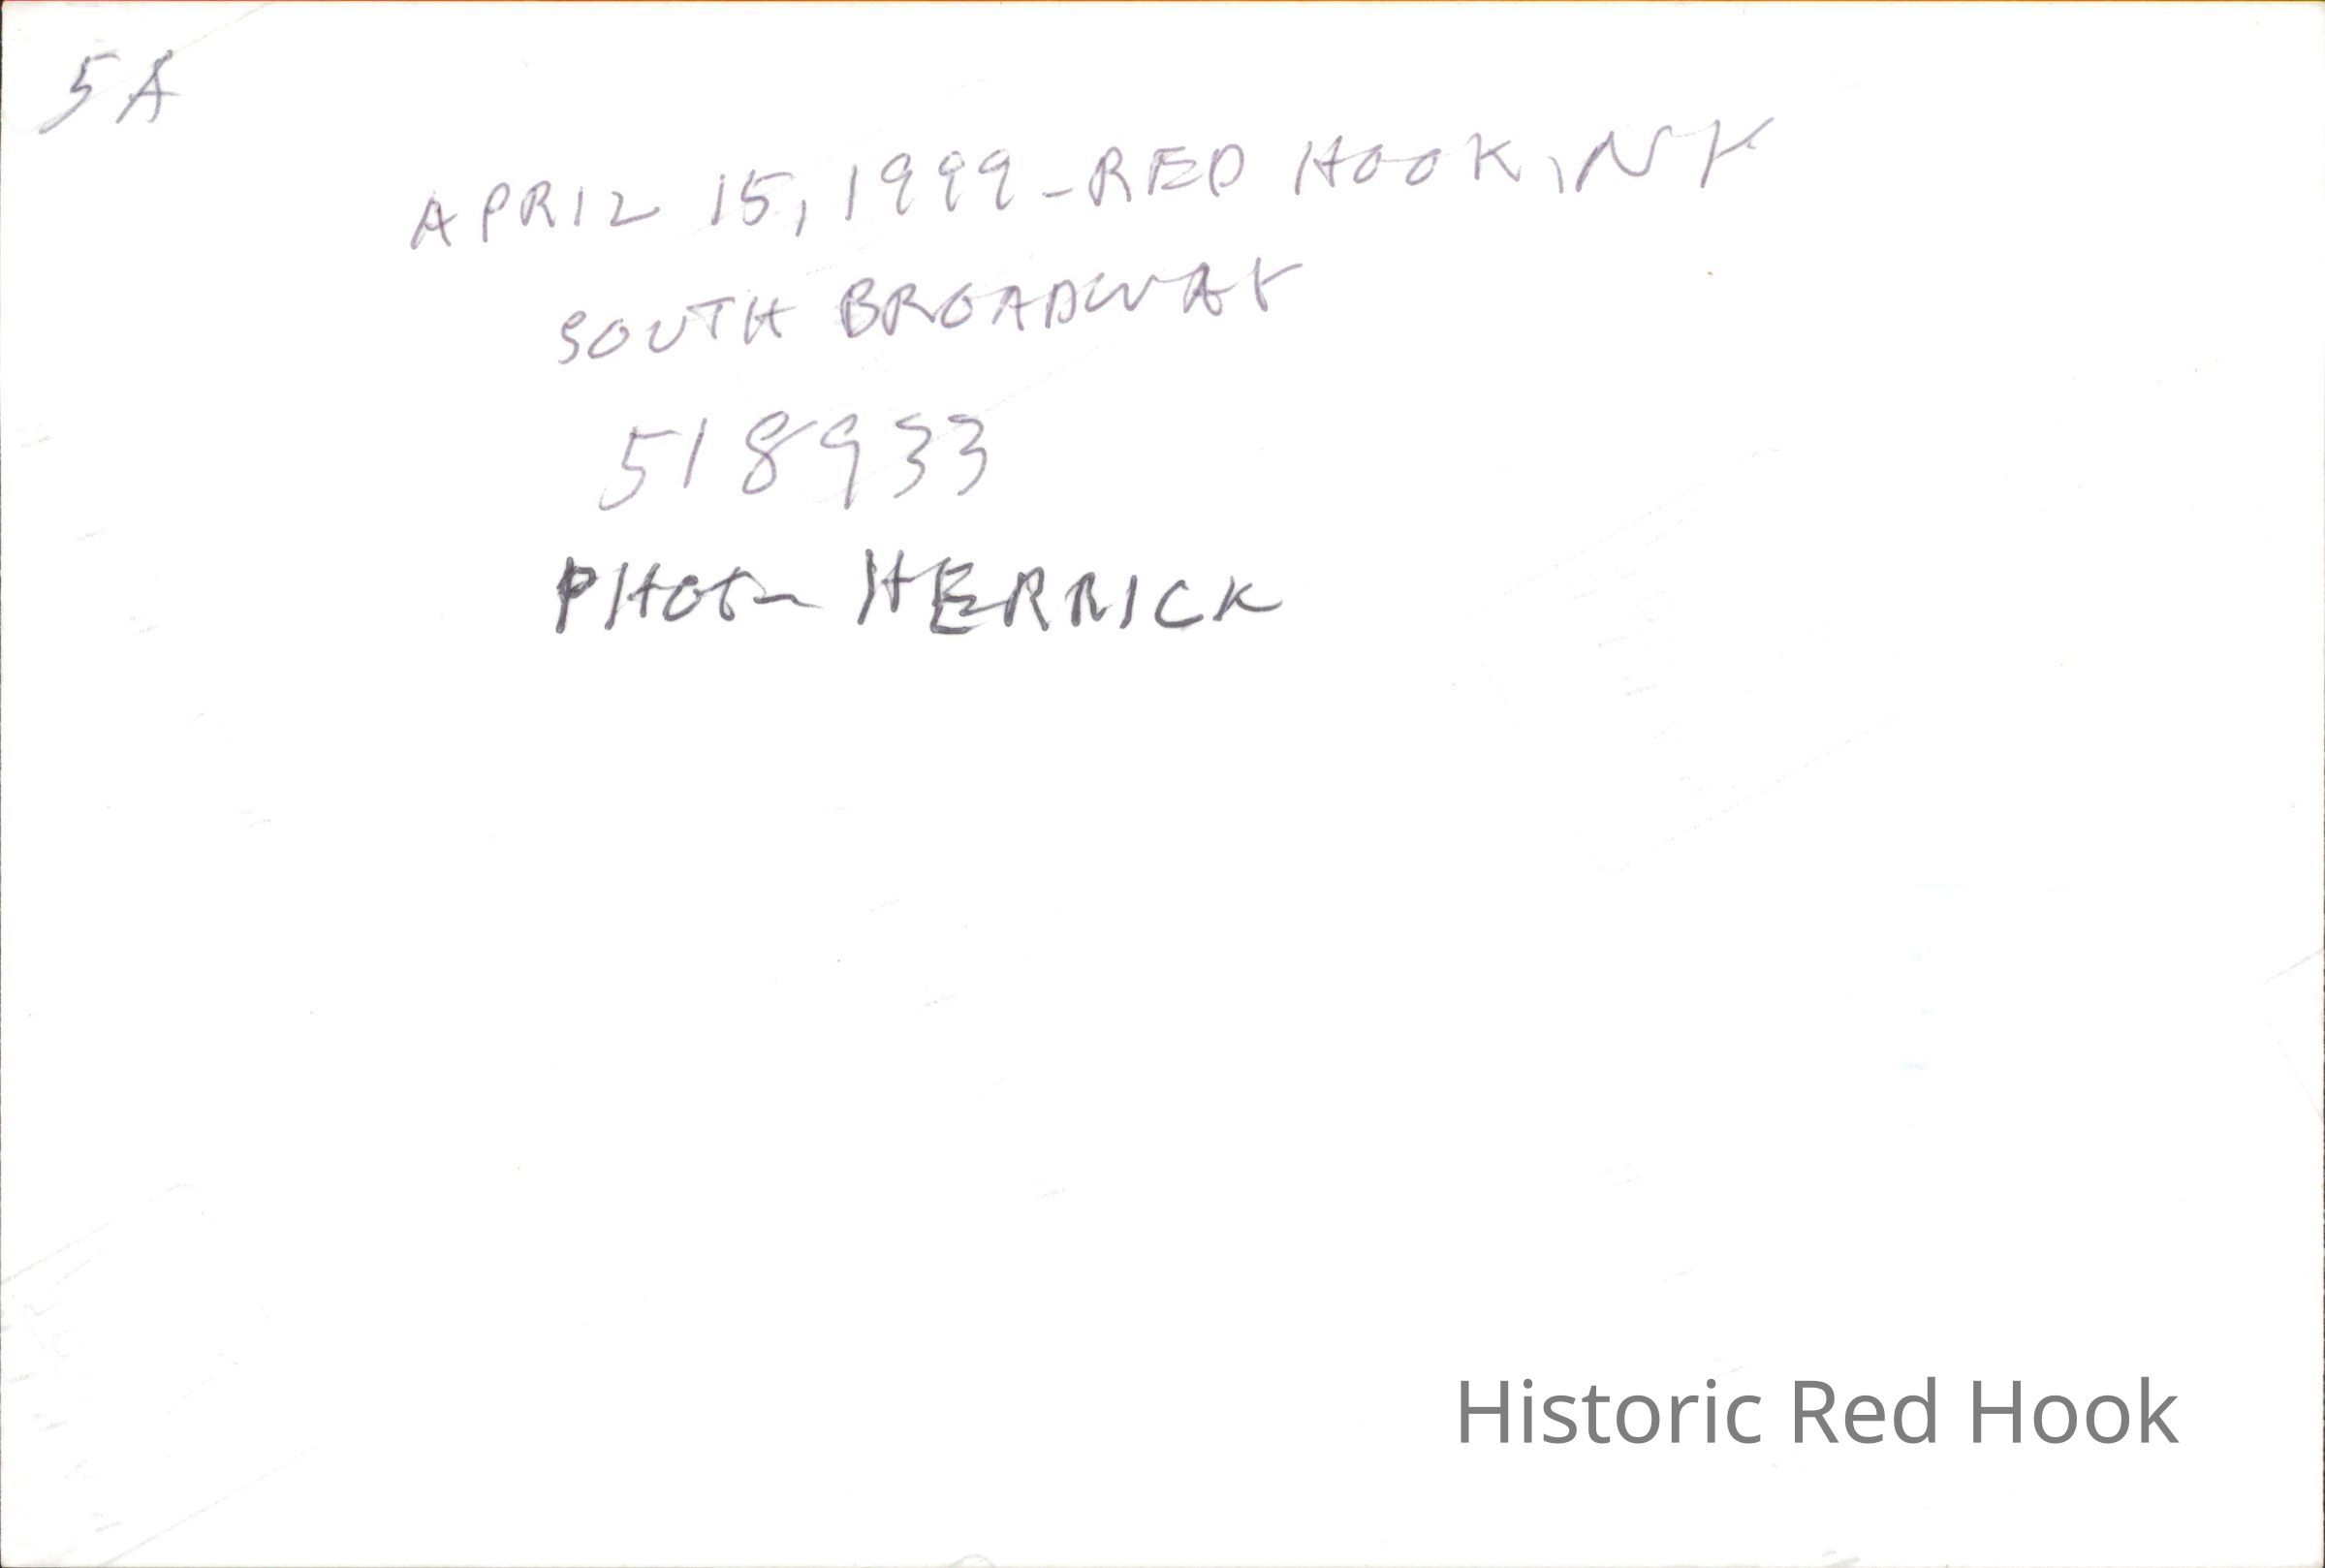 5A
APRIL 15, 1999 - RED HOOK, NY
SOUTH BROADWAY
518933
PHOTO HERRICK
Historic Red Hook